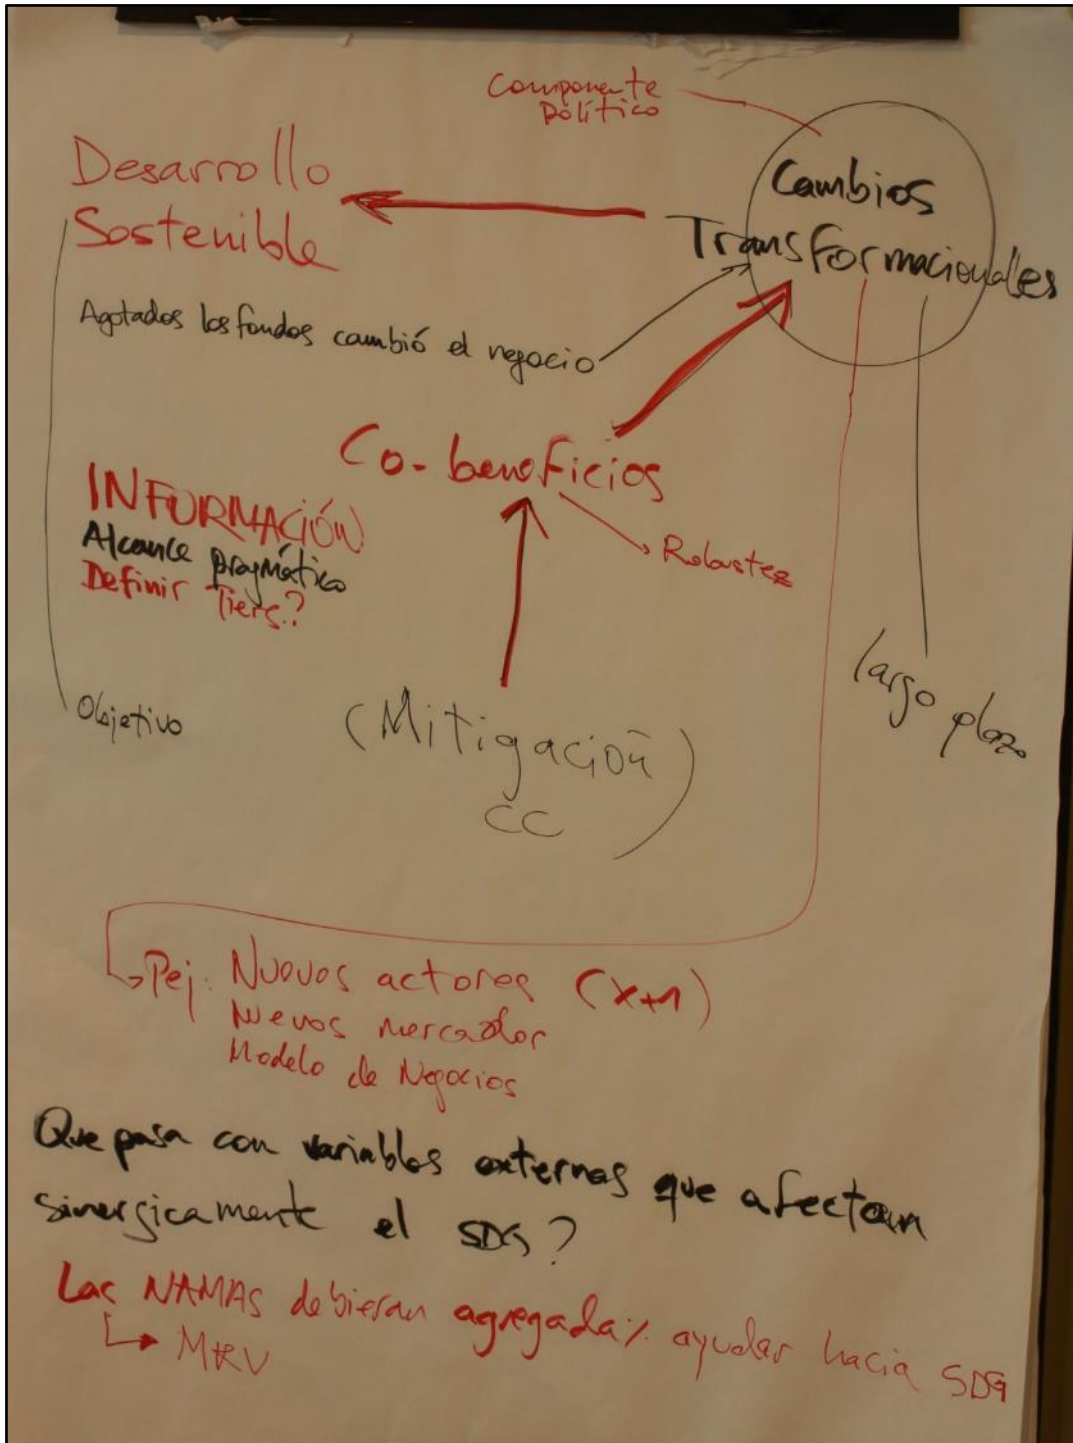 Componente
Político
Desarrollo
Sostenible
Cambios
Transformacionales
Agotados los fondos cambió el negocio
Co-beneficios
Robustez
INFORMACIÓN
Alcance pragmático
Definir Tiers?
largo plazo
Objetivo
(Mitigación)
CC
Pej: Nuevos actores (x+1)
Nuevos mercados
Modelo de Negocios
Que pasa con variables externas que afectan
sinergicamente el SDG?
Las NAMAS debieran agregada% ayudar hacia SDG
MRV